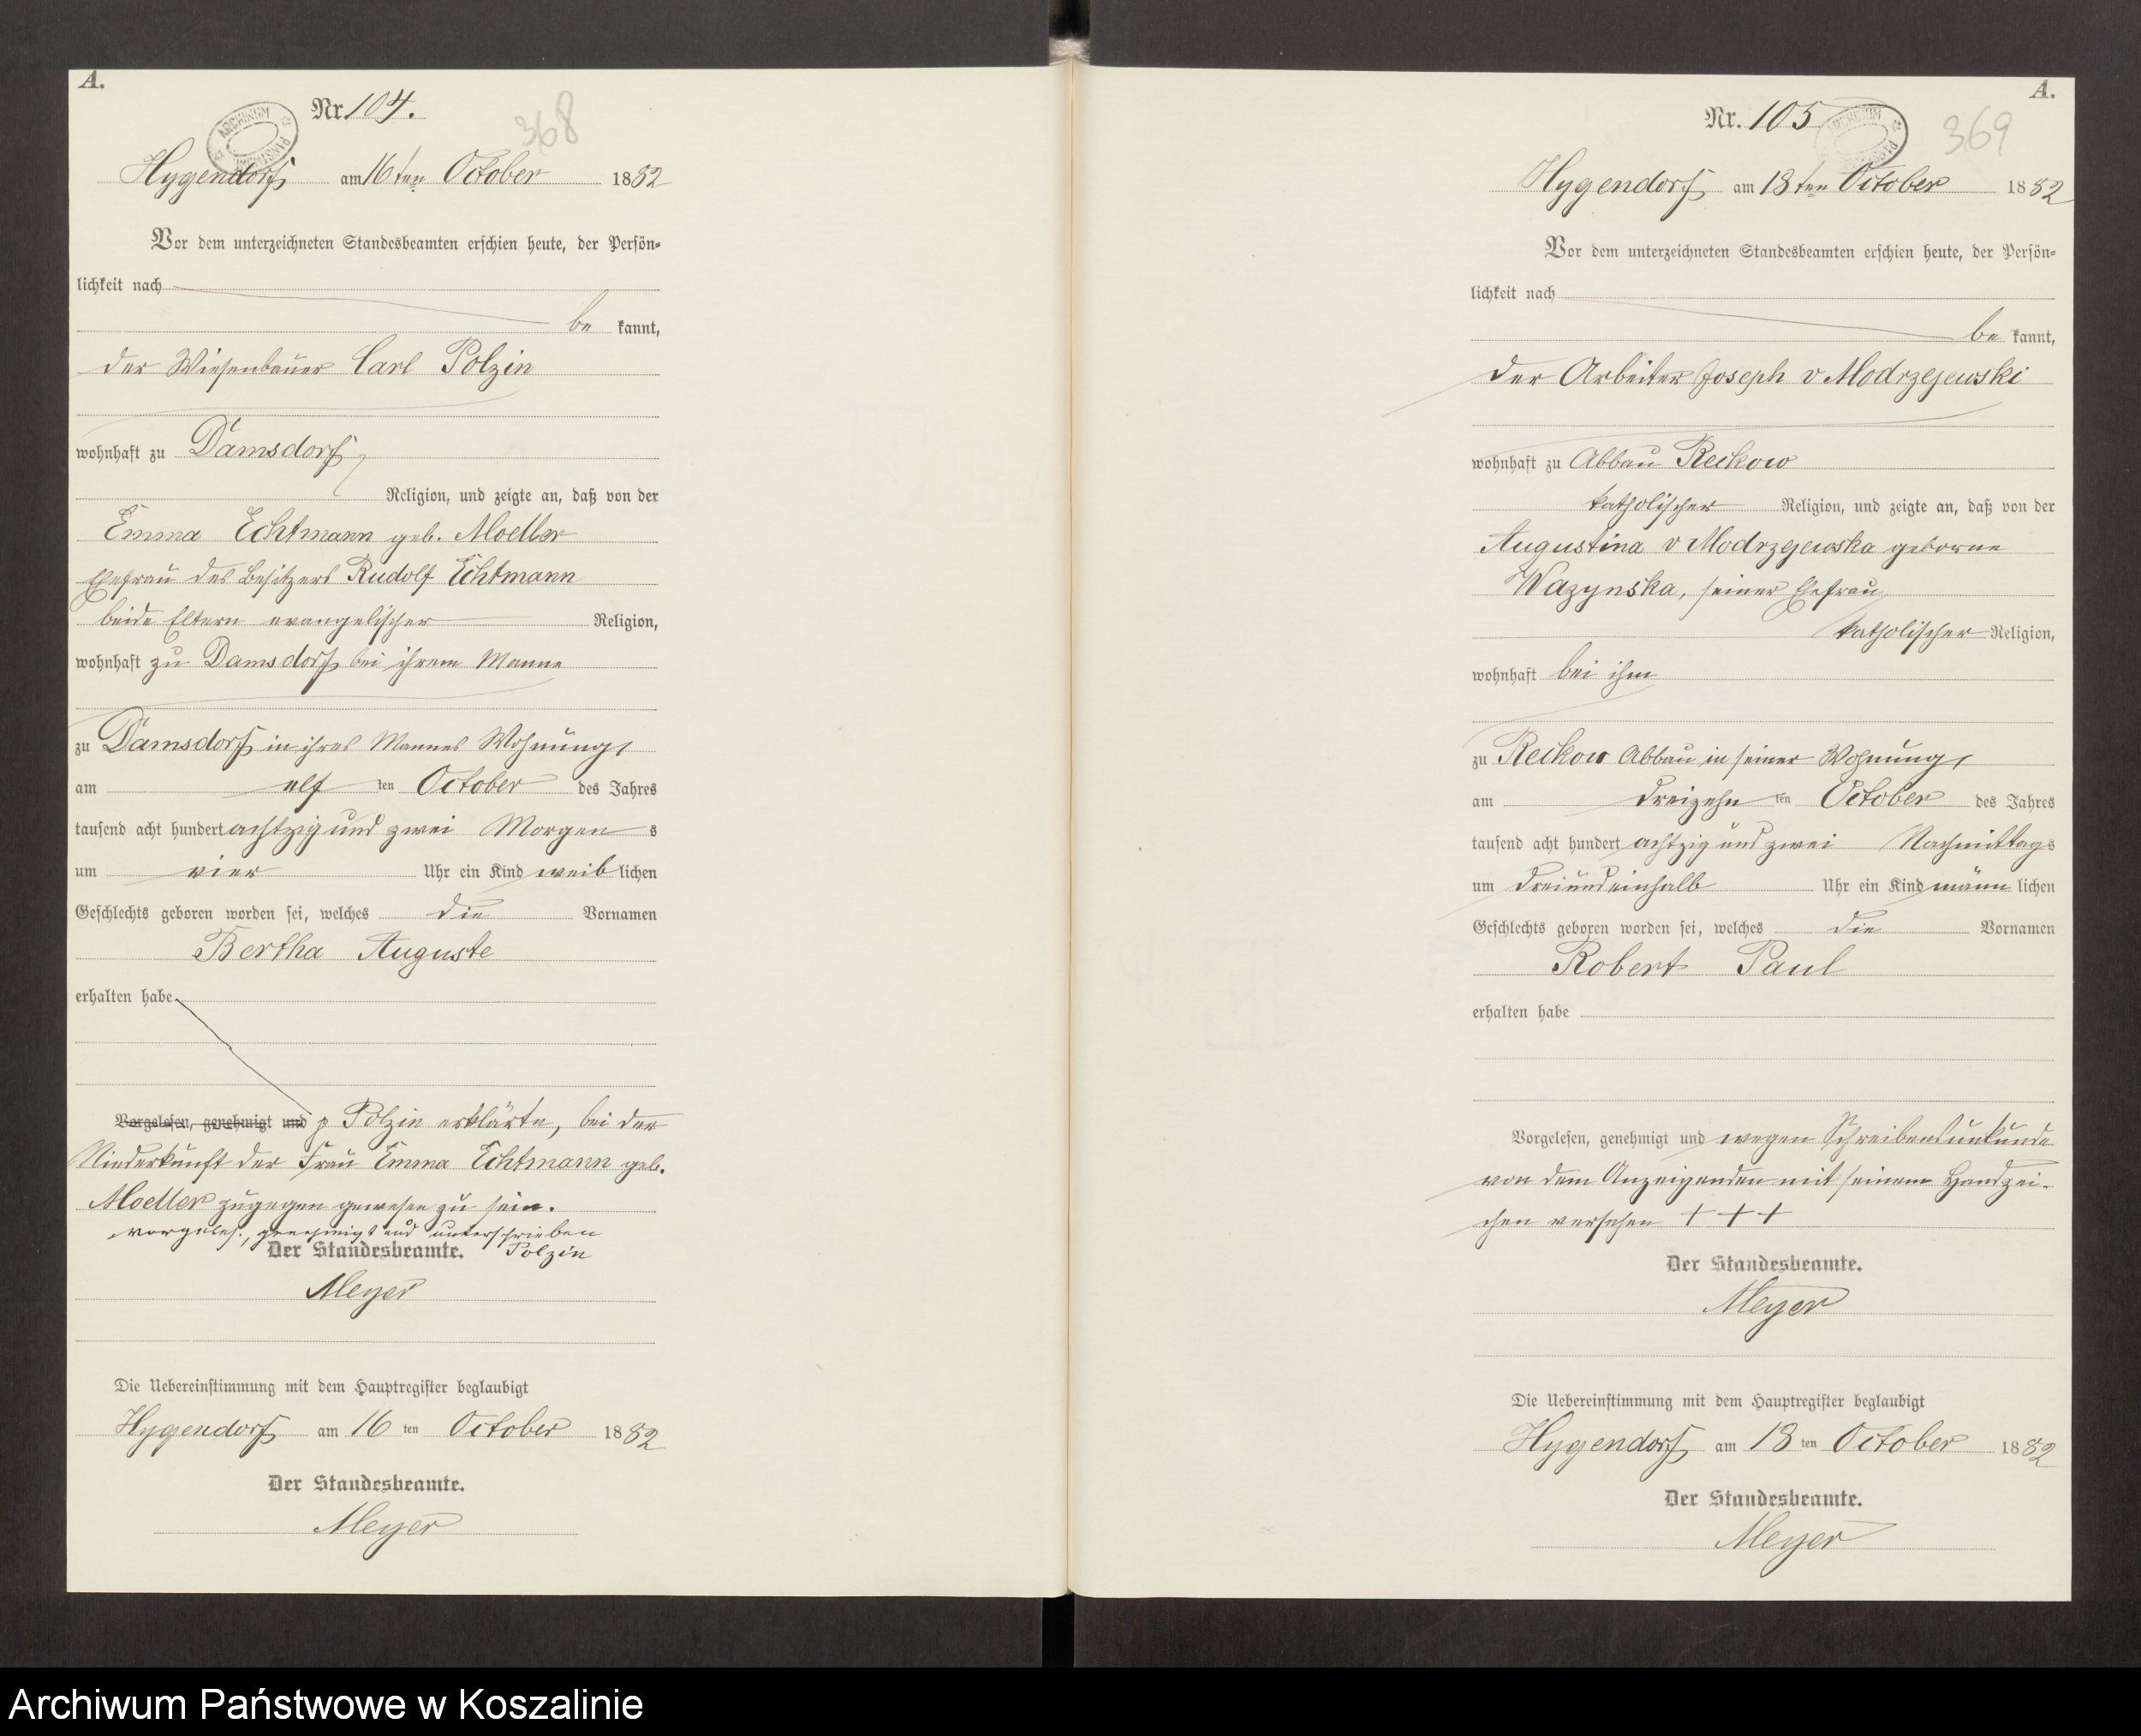 A.
Nr. 104.
368
ARCHIWUM PAŃSTWOWE
Hygendorf am 16ten October 1882
Vor dem unterzeichneten Standesbeamten erschien heute, der Persön-
lichkeit nach
be kannt,
der Wiesenbauer Carl Polzin
wohnhaft zu Damsdorf
Religion, und zeigte an, daß von der
Emma Echtmann geb. Moeller
Ehefrau des Besitzers Rudolf Echtmann
beide Eltern evangelischer Religion,
wohnhaft zu Damsdorf bei ihrem Manne
zu Damsdorf in ihres Mannes Wohnung,
am elf ten October des Jahres
tausend acht hundert achtzig und zwei Morgen s
um vier Uhr ein Kind weib lichen
Geschlechts geboren worden sei, welches die Vornamen
Bertha Auguste
erhalten habe
Vorgelesen, genehmigt und p Polzin erklärte, bei der
Niederkunft der Frau Emma Echtmann geb.
Moeller zugegen gewesen zu sein.
vorgeles., genehmigt und unterschrieben
Der Standesbeamte. Polzin
Meyer
Die Uebereinstimmung mit dem Hauptregister beglaubigt
Hygendorf am 16 ten October 1882
Der Standesbeamte.
Meyer
A.
Nr. 105
369
Hygendorf am 18ten October 1882
Vor dem unterzeichneten Standesbeamten erschien heute, der Persön-
lichkeit nach
be kannt,
der Arbeiter Joseph v Modrzejewski
wohnhaft zu Abbau Reckow
katholischer Religion, und zeigte an, daß von der
Augustina v Modrzejewska geborne
Wazynska, seiner Ehefrau
katholischer Religion,
wohnhaft bei ihm
zu Reckow Abbau in seiner Wohnung,
am dreizehn ten October des Jahres
tausend acht hundert achtzig und zwei Nachmittags
um dreiundeinhalb Uhr ein Kind männ lichen
Geschlechts geboren worden sei, welches die Vornamen
Robert Paul
erhalten habe
Vorgelesen, genehmigt und wegen Schreibensunkunde
von dem Anzeigenden mit seinem Handzei-
chen versehen + + +
Der Standesbeamte.
Meyer
Die Uebereinstimmung mit dem Hauptregister beglaubigt
Hygendorf am 18 ten October 1882
Der Standesbeamte.
Meyer
Archiwum Państwowe w Koszalinie